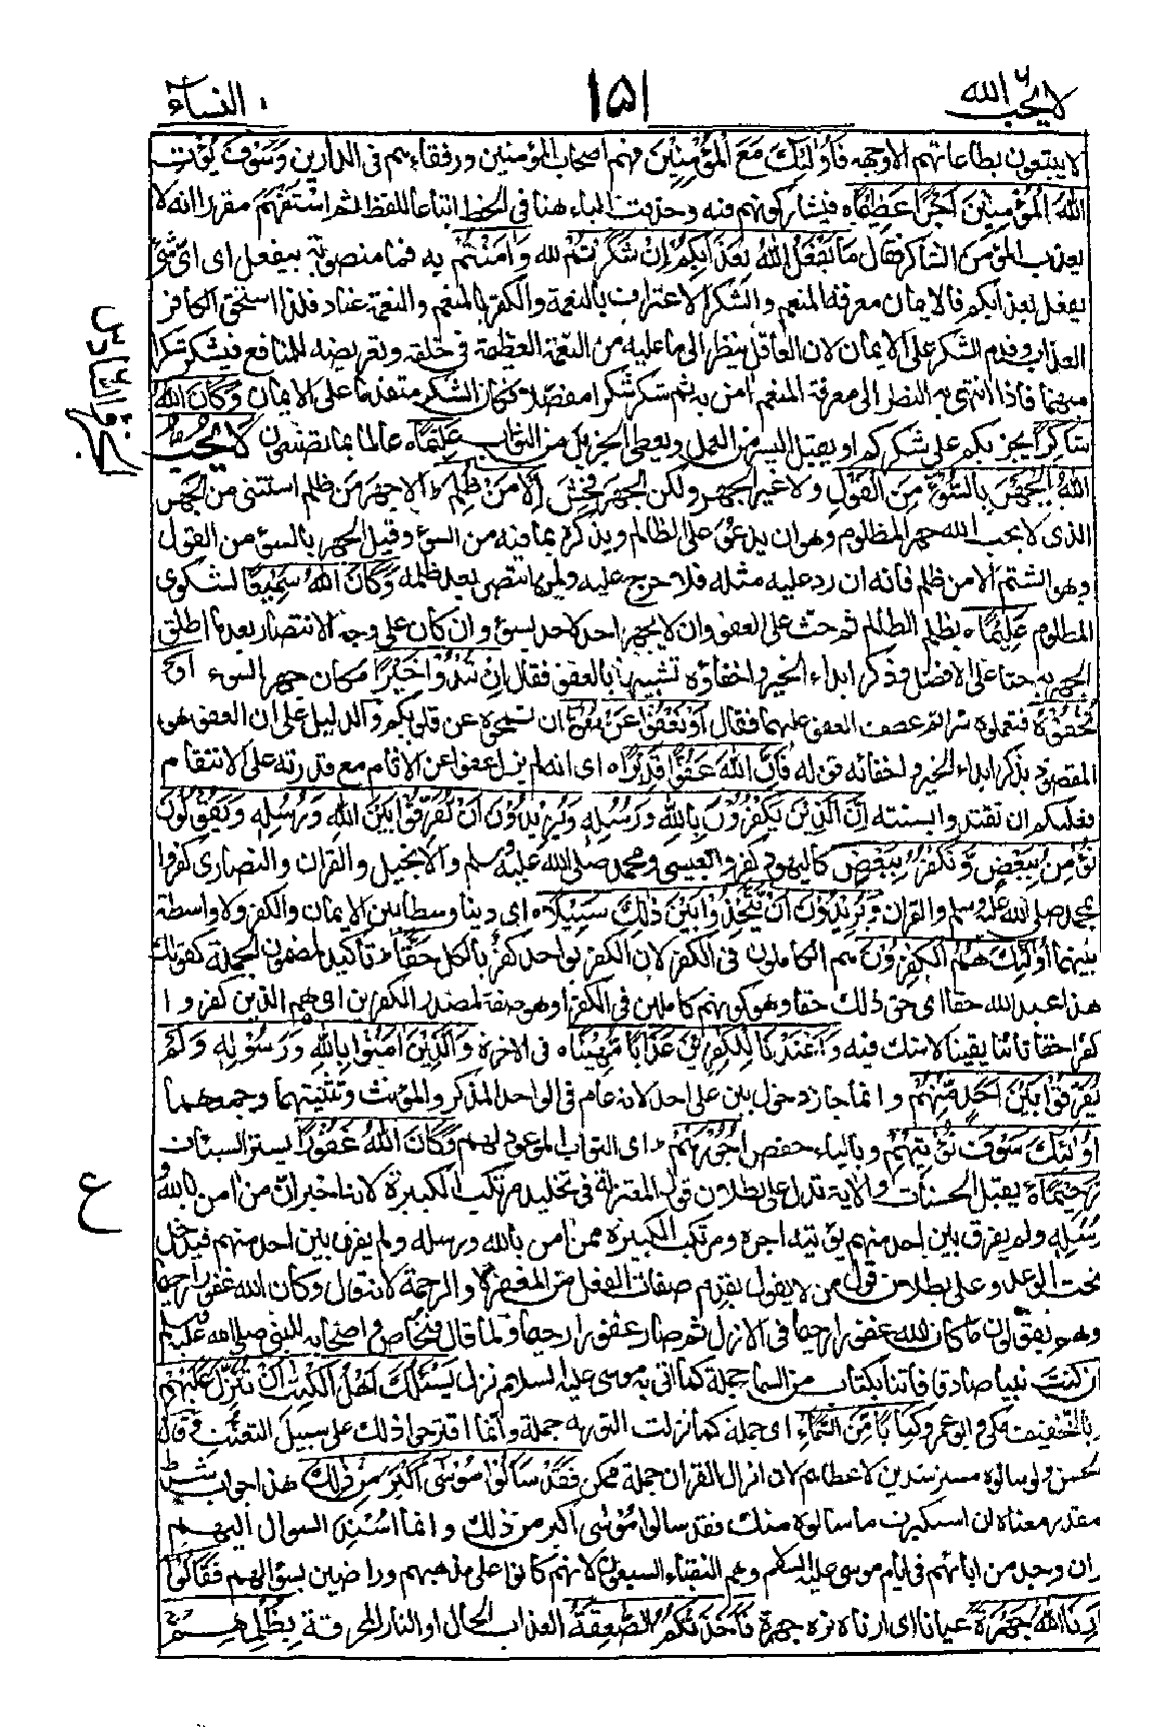 لا يحب الله ٦
١٥١
النساء
لا يبتغون بطاعاتهم الا وجهه فَاُولٰٓئِكَ مَعَ الْمُؤْمِنِيْنَ فهم اصحاب المؤمنين ورفقاءهم فى الدارين وَسَوْفَ يُؤْتِ
اللّٰهُ الْمُؤْمِنِيْنَ اَجْرًا عَظِيْمًا ه فيشاركونهم فيه وحذفت الياء هنا فى الخط اتباعا للفظ ثم استفهم مقررا انه لا
يعذب المؤمن الشاكر فقال مَا يَفْعَلُ اللّٰهُ بِعَذَابِكُمْ اِنْ شَكَرْتُمْ لله وَاٰمَنْتُمْ به فما منصوبة بيفعل اى اى شئ
يفعل بعذابكم فالايمان معرفة المنعم والشكر الاعتراف بالنعمة والكفر بالمنعم والنعمة عناد فلذا استحق الكافر
العذاب وقدم الشكر على الايمان لان العاقل ينظر الى ما عليه من النعمة العظيمة فى خلقه وتعريضه للمنافع فيشكر شكرا
مبهما فاذا انتهى به النظر الى معرفة المنعم امن به ثم شكر شكرا مفصلا فكان الشكر متقدما على الايمان وَكَانَ اللّٰهُ
شَاكِرًا يجزيكم على شكركم او يقبل اليسير من العمل ويعطى الجزيل من الثواب عَلِيْمًا ه عالما بما تصنعون لَا يُحِبُّ
اللّٰهُ الْجَهْرَ بِالسُّوْٓءِ مِنَ الْقَوْلِ ولا غير الجهر ولكن الجهر افحش اِلَّا مَنْ ظُلِمَ ط الا جهر من ظلم استثنى من الجهر
الذى لا يحب الله جهر المظلوم وهو ان يدعو على الظالم ويذكره بما فيه من السوء وقيل الجهر بالسوء من القول
وهو الشتم الا من ظلم فانه ان رد عليه مثله فلا حرج عليه ولمن انتصر بعد ظلمه وَكَانَ اللّٰهُ سَمِيْعًا لشكوى
المظلوم عَلِيْمًا ه بظلم الظالم ثم حث على العفو وان لا يجهر احد لاحد بسوء وان كان على وجه الانتصار بعد ما اطلق
الجهر به حثا على الافضل وذكر ابداء الخير واخفاؤه تشبيبا بالعفو فقال اِنْ تُبْدُوْا خَيْرًا مكان جهر السوء اَوْ
تُخْفُوْهُ فتعملوه سرا ثم عطف العفو عليهما فقال اَوْ تَعْفُوْا عَنْ سُوْٓءٍ ان تمحوه عن قلوبكم والدليل على ان العفو هو
المقصود بذكر ابداء الخير واخفائه قوله فَاِنَّ اللّٰهَ كَانَ عَفُوًّا قَدِيْرًا ه اى انه لم يزل عفوا عن الاثام مع قدرته على الانتقام
فعليكم ان تقتدوا بسنته اِنَّ الَّذِيْنَ يَكْفُرُوْنَ بِاللّٰهِ وَرُسُلِهٖ وَيُرِيْدُوْنَ اَنْ يُّفَرِّقُوْا بَيْنَ اللّٰهِ وَرُسُلِهٖ وَيَقُوْلُوْنَ
نُؤْمِنُ بِبَعْضٍ وَّنَكْفُرُ بِبَعْضٍ كاليهود كفروا بعيسى ومحمد صلى الله عليه وسلم والانجيل والقران والنصارى كفروا
بمحمد صلى الله عليه وسلم والقران وَيُرِيْدُوْنَ اَنْ يَّتَّخِذُوْا بَيْنَ ذٰلِكَ سَبِيْلًا ه اى دينا وسطا بين الايمان والكفر ولا واسطة
بينهما اُولٰٓئِكَ هُمُ الْكٰفِرُوْنَ هم الكاملون فى الكفر لان الكفر بواحد كفر بالكل حَقًّا ط تاكيد لمضمون الجملة كقولك
هذا عبد الله حقا اى حق ذلك حقا وهو كونهم كاملين فى الكفر او هو صفة لمصدر الكفرين اى هم الذين كفروا
كفرا حقا ثابتا يقينا لا شك فيه وَاَعْتَدْنَا لِلْكٰفِرِيْنَ عَذَابًا مُّهِيْنًا ه فى الاخرة وَالَّذِيْنَ اٰمَنُوْا بِاللّٰهِ وَرُسُلِهٖ وَلَمْ
يُفَرِّقُوْا بَيْنَ اَحَدٍ مِّنْهُمْ وانما جاز دخول بين على احد لانه عام فى الواحد المذكر والمؤنث وتثنيتهما وجمعهما
اُولٰٓئِكَ سَوْفَ نُؤْتِيْهِمْ وبالياء حفص اُجُوْرَهُمْ ط اى الثواب الموعود لهم وَكَانَ اللّٰهُ غَفُوْرًا يستر السيئات
رَّحِيْمًا ه يقبل الحسنات والاية تدل على بطلان قول المعتزلة فى تخليد مرتكب الكبيرة لانه اخبر ان من امن بالله و
رسله ولم يفرق بين احد منهم يؤتيه اجره ومرتكب الكبيرة ممن امن بالله ورسله ولم يفرق بين احد منهم فيدخل
تحت الوعد وعلى بطلان قول من لا يقول بقدم صفات الفعل من المغفرة والرحمة لانه قال وكان الله غفورا رحيما
وهم يقولون ما كان الله غفورا رحيما فى الازل ثم صار غفورا رحيما ولما قال فنحاص واصحابه للنبى صلى الله عليه وسلم
ان كنت نبيا صادقا فاتنا بكتاب من السماء جملة كما اتى به موسى عليه السلام نزل يَسْئَلُكَ اَهْلُ الْكِتٰبِ اَنْ تُنَزِّلَ عَلَيْهِمْ
بالتخفيف مكى وابو عمرو كِتٰبًا مِّنَ السَّمَآءِ اى جملة كما نزلت التورية جملة وانما اقترحوا ذلك على سبيل التعنت وقال
الحسن ولو سالوه مسترشدين لاعطاهم لان انزال القران جملة ممكن فَقَدْ سَاَلُوْا مُوْسٰٓى اَكْبَرَ مِنْ ذٰلِكَ هذا جواب شرط
مقدر معناه ان استكبرت ما سالوه منك فقد سالوا موسى اكبر من ذلك وانما اسند السوال اليهم
وان وجد من ابائهم فى ايام موسى عليه السلام وهم النقباء السبعون لانهم كانوا على مذهبهم وراضين بسؤالهم فَقَالُوْٓا
اَرِنَا اللّٰهَ جَهْرَةً عيانا اى ارناه نره جهرة فَاَخَذَتْهُمُ الصّٰعِقَةُ العذاب الهائل او النار المحرقة بِظُلْمِهِمْ
ع